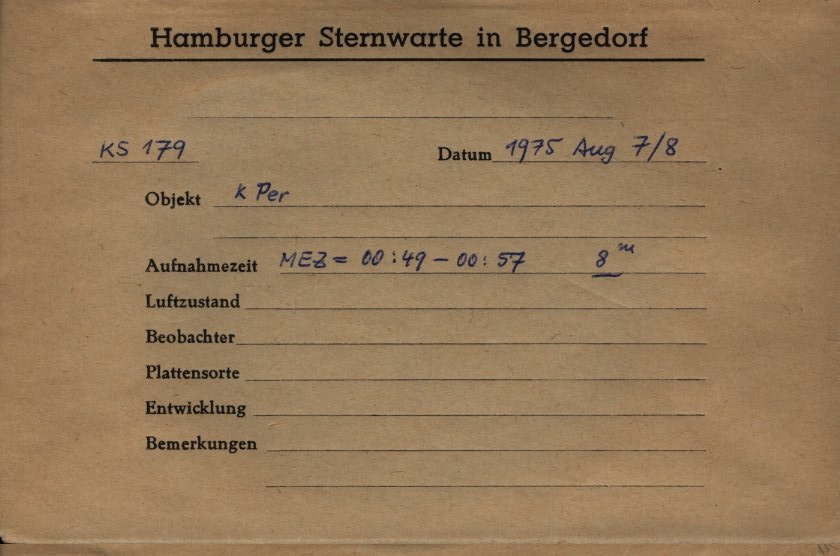 Hamburger Sternwarte in Bergedorf
KS 179 Datum 1975 Aug 7/8
Objekt κ Per
Aufnahmezeit MEZ = 00:49 – 00:57 8ᵐ
Luftzustand
Beobachter
Plattensorte
Entwicklung
Bemerkungen